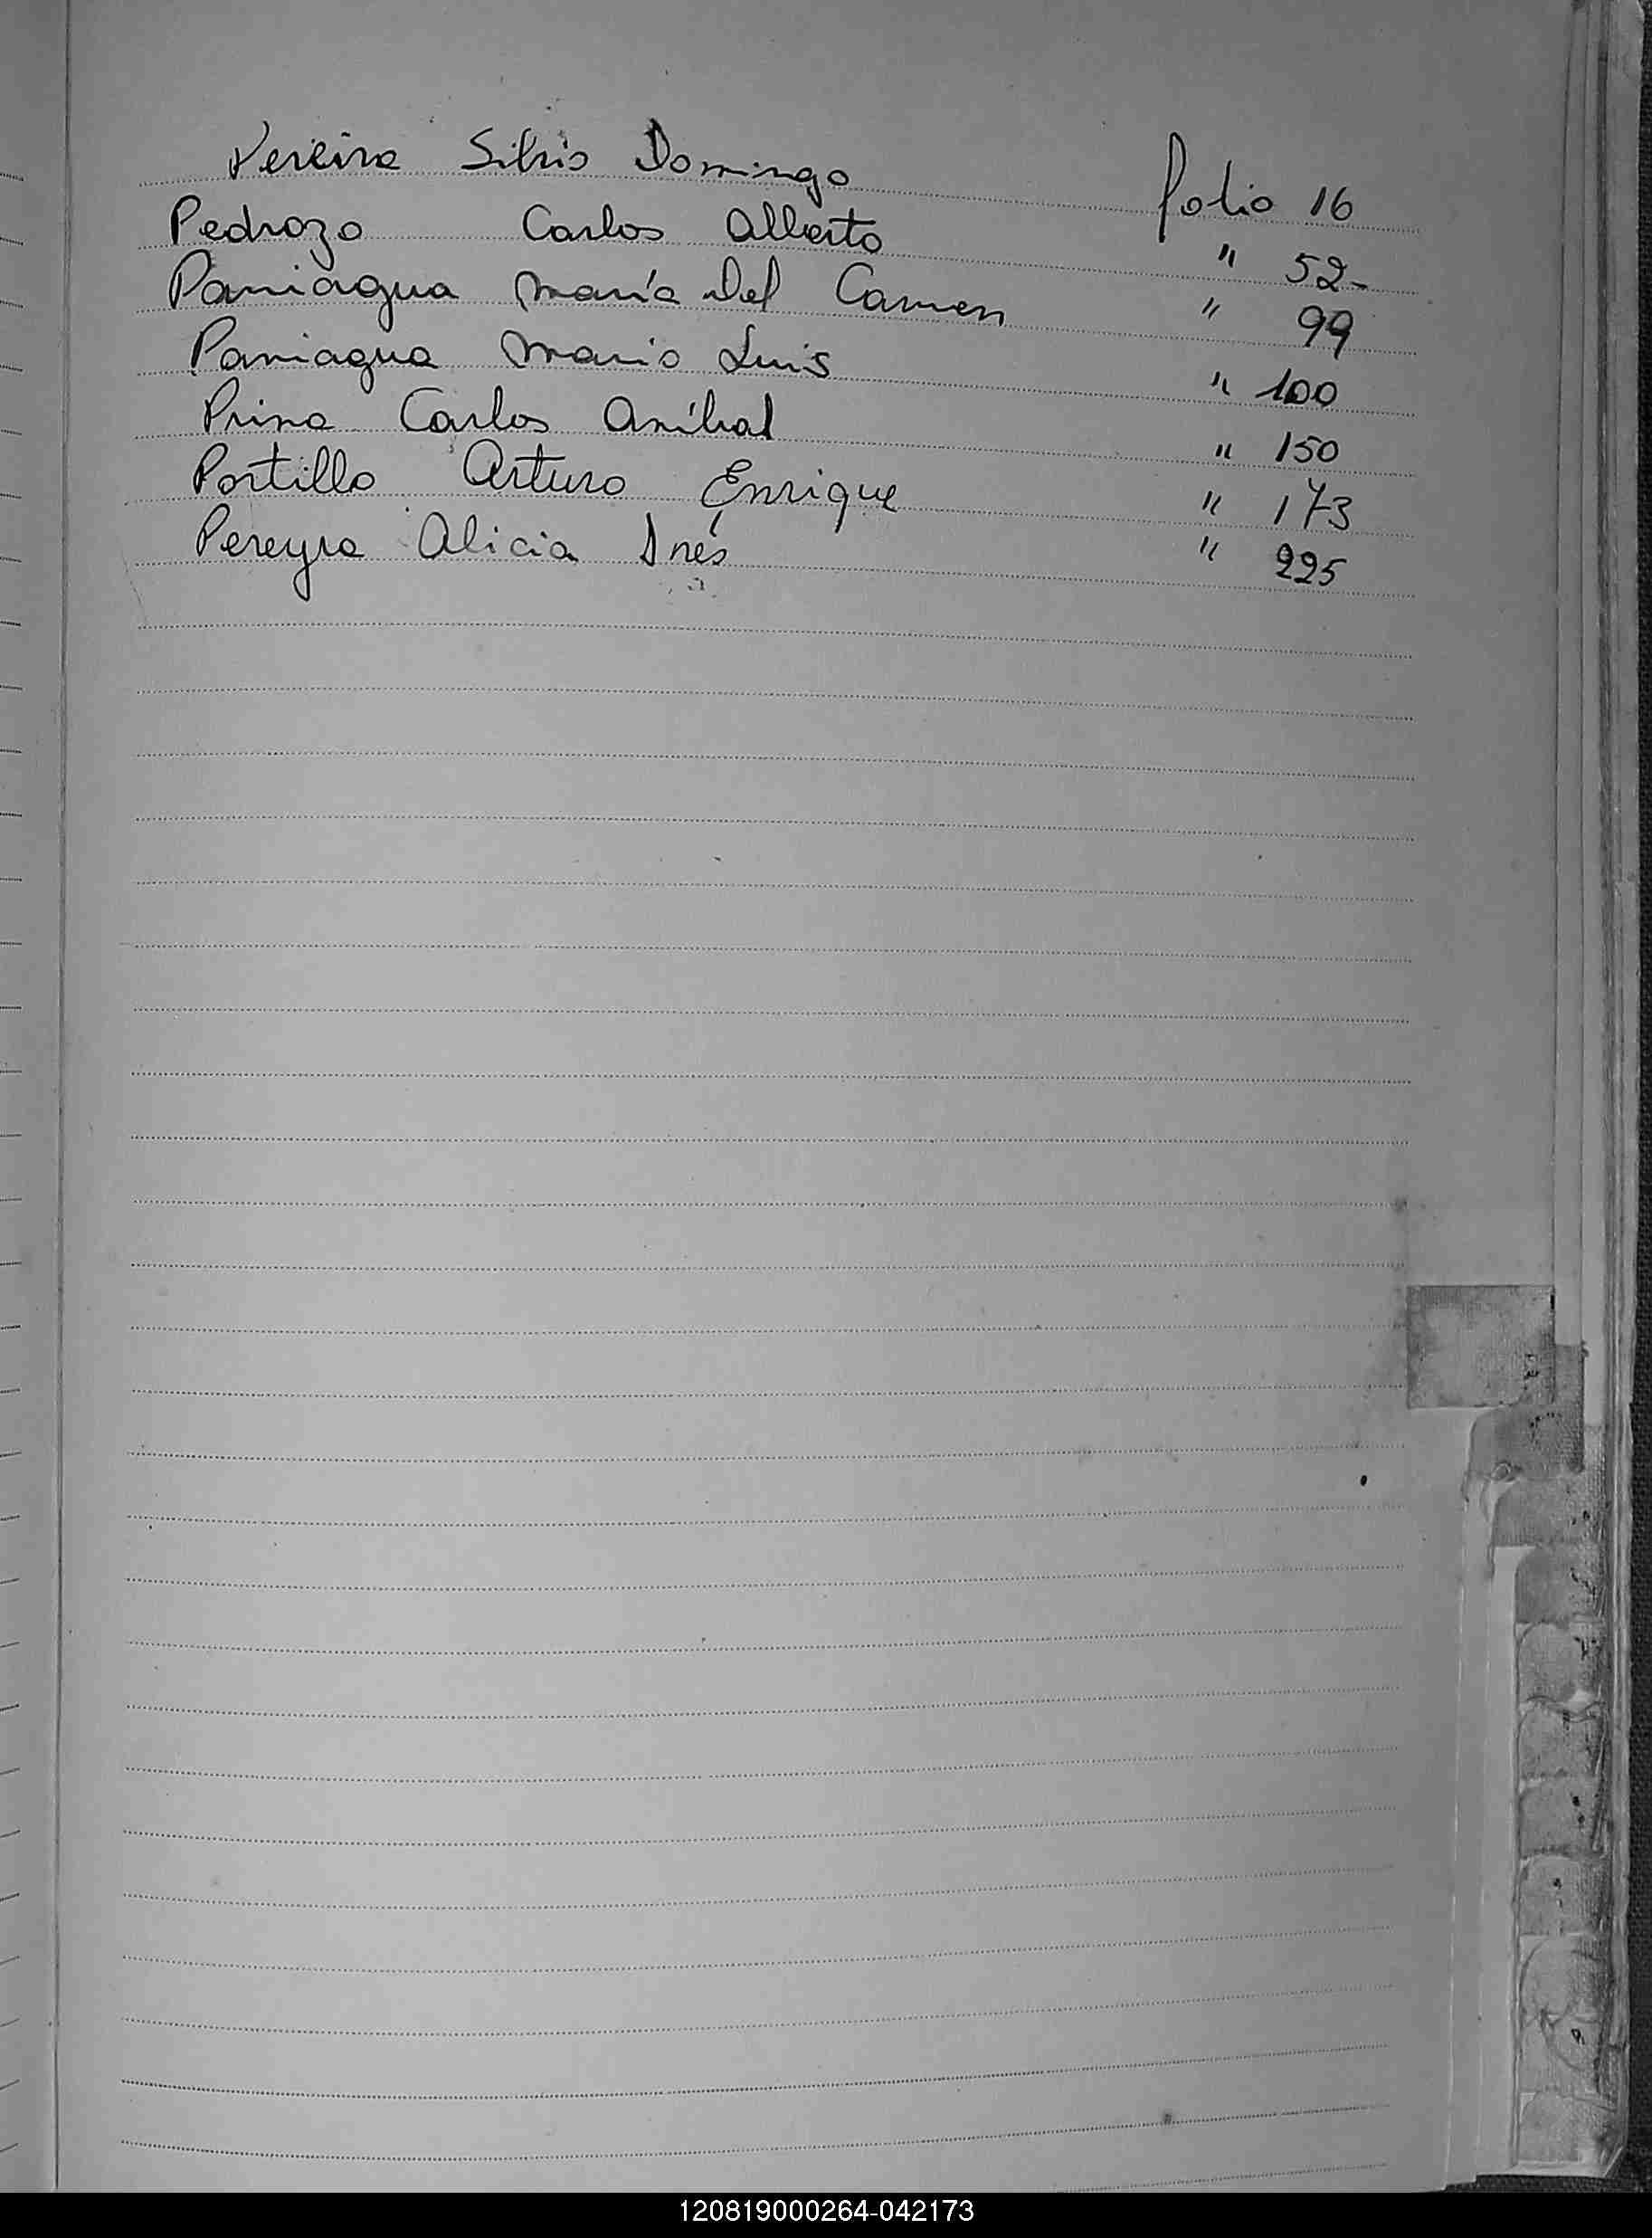 Pereira Silvio Domingo folio 16
Pedrozo Carlos Alberto " 52-
Paniagua María Del Carmen " 99
Paniagua Mario Luis " 100
Prina Carlos Aníbal " 150
Portillo Arturo Enrique " 173
Pereyra Alicia Inés " 225
120819000264-042173